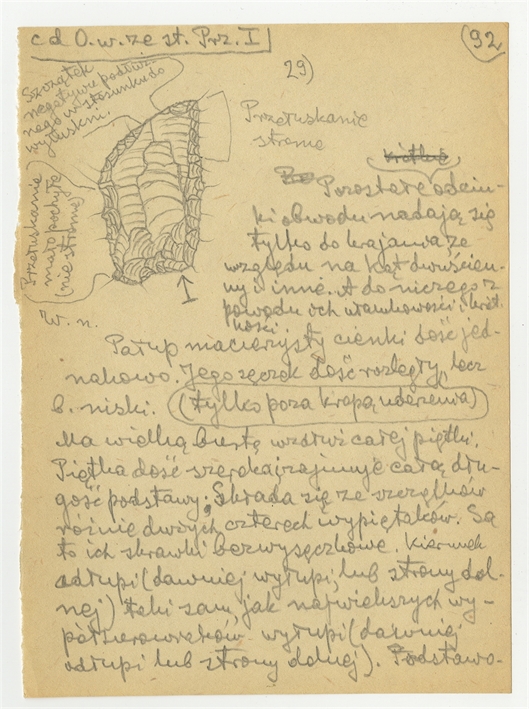 c d O. w. ze st. Prz. I
92
29)
Szczątek
negatywu podłużn
nego w stosunku do
wyłuskni.
Przełuskanie
strome
Przełuskanie
mało pochyłe
(nie strome)
W. n.
krótkie
Pozostałe odcin-
ki obwodu nadają się
tylko do krajania ze
względu na kąt dwuścien-
ny i inne. A do niczego z
powodu ich ułamkowości i krót
kości.
Półup macierzysty cienki dość jed-
nakowo. Jego sęczek dość rozległy, lecz
b. niski. (tylko poza kropą uderzenia)
Ma wielką burtę wzdłuż całej piętki.
Piętka dość szeroka, zajmuje całą dłu-
gość podstawy. Składa się ze szczątków
różnie dużych czterech wypiętaków. Są
to ich skrawki bezwysęczkowe. Kierunek
odłupi (dawniej wyłupi, lub strony dol-
nej) taki sam, jak największych wy-
wyłupi (dawniej
odłupi lub strony dolnej). Podstawo-